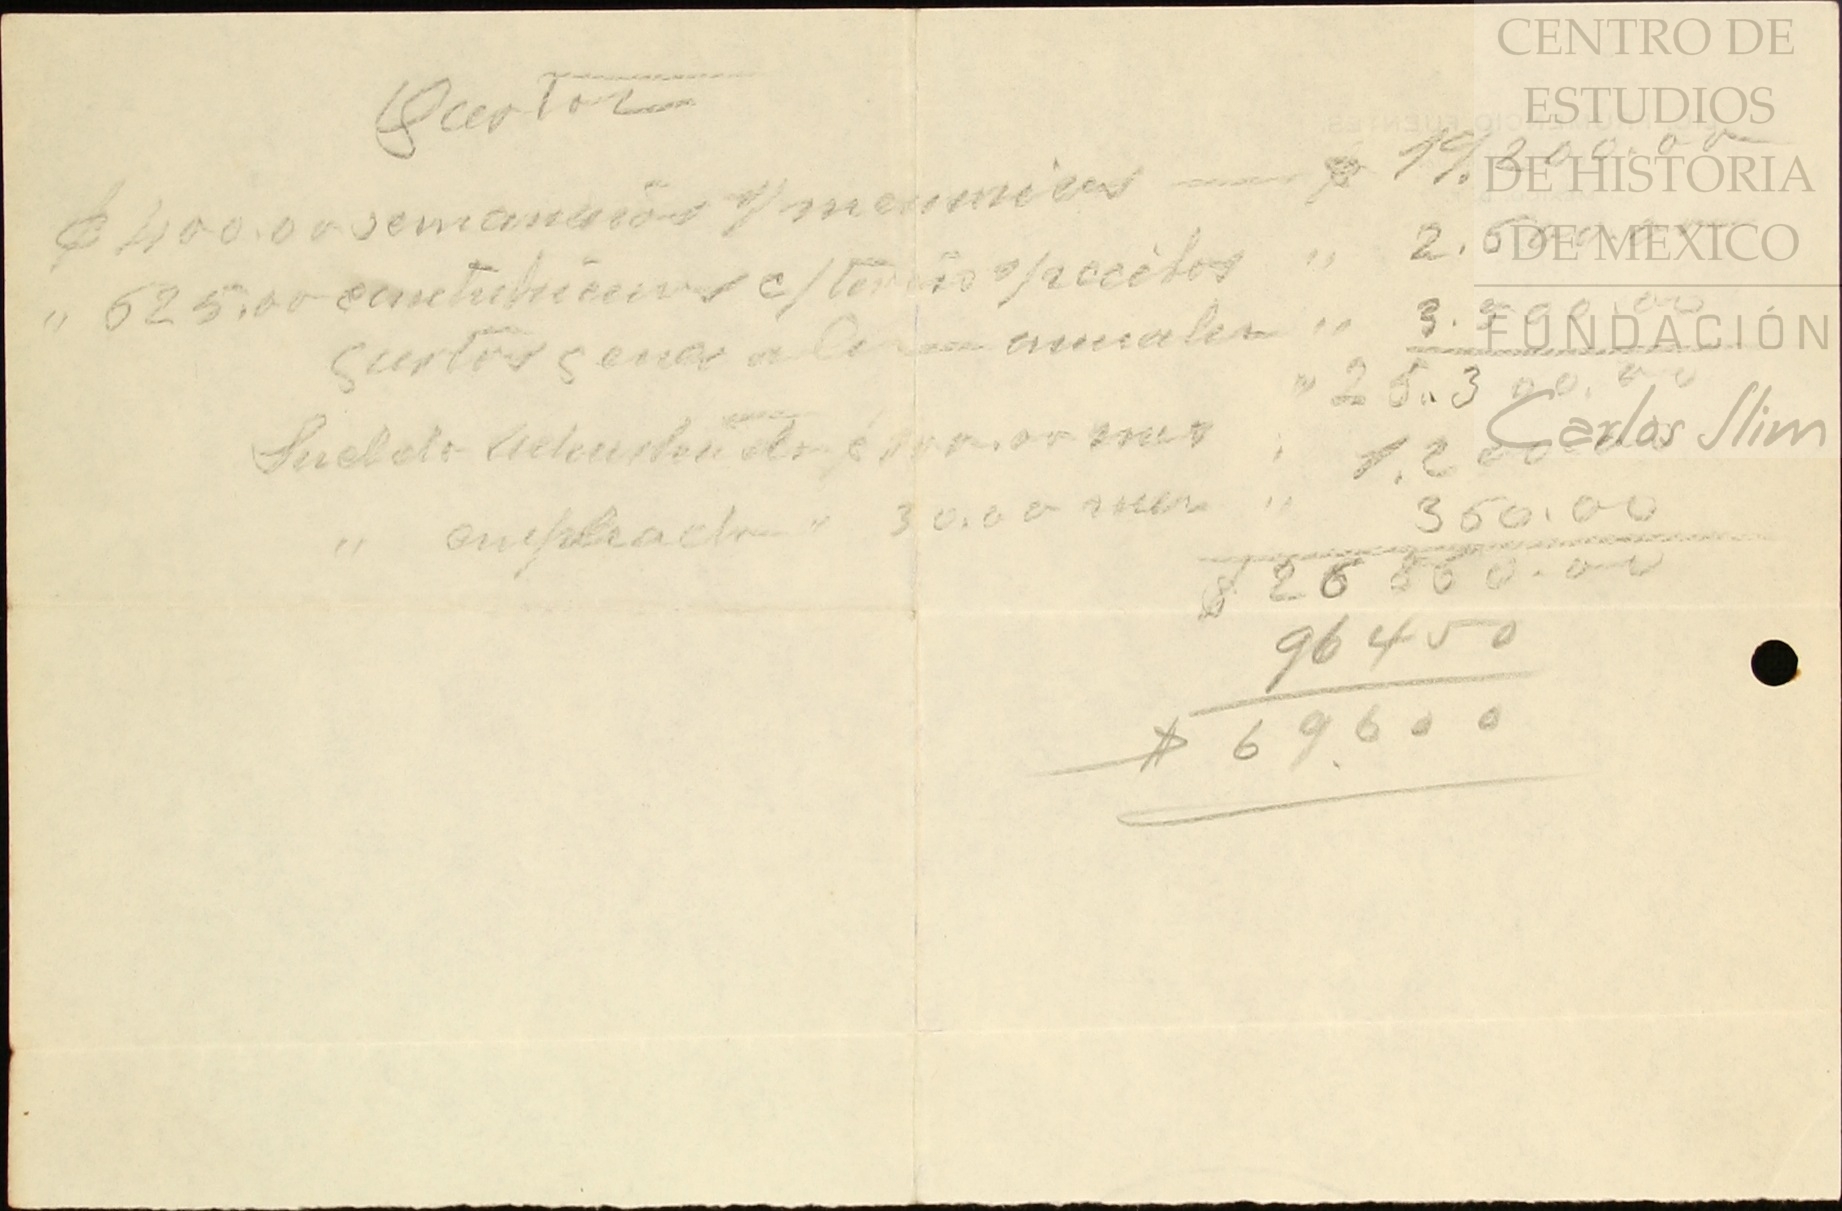 Gastos
$ 400.00 semanarios p/ mensuales — $ 19.200.00
" 625.00 contribuciones c/ tercio s/ recibos " 2.500.00
gastos generales anuales " 3.
" 25.300.00
Sueldo $ 100.00 mes " 1.200.00
" empleado " 30.00 mes " 360.00
$ 26 860.00
96450
$ 69.600
CENTRO DE
ESTUDIOS
DE HISTORIA
DE MEXICO
FUNDACIÓN
Carlos Slim